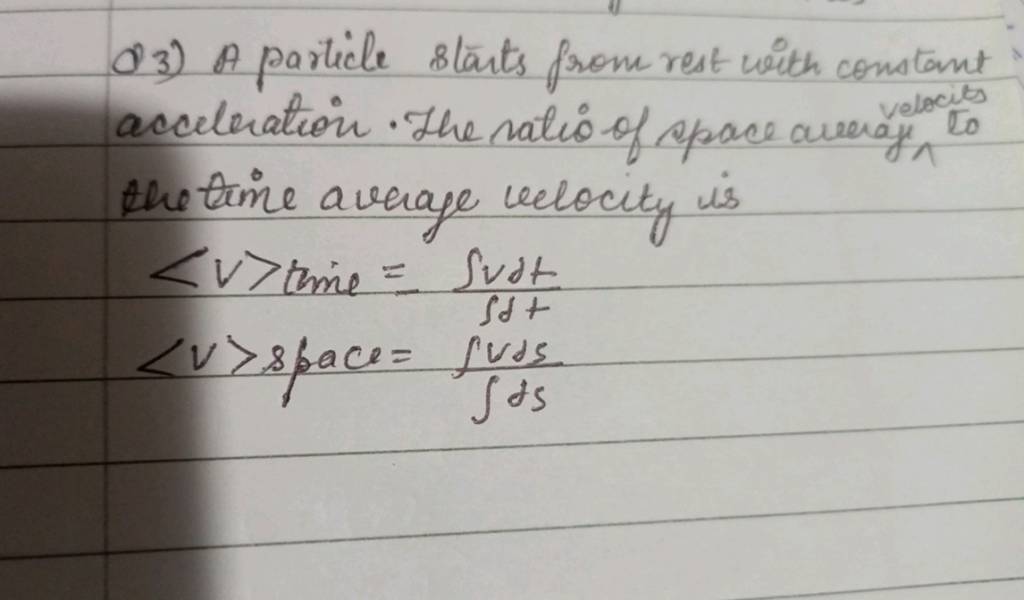 Q3) A particle starts from rest with constant
acceleration. The ratio of space average velocity to
the time average velocity is
<V>time = ∫vdt / ∫dt
<V>space = ∫vds / ∫ds